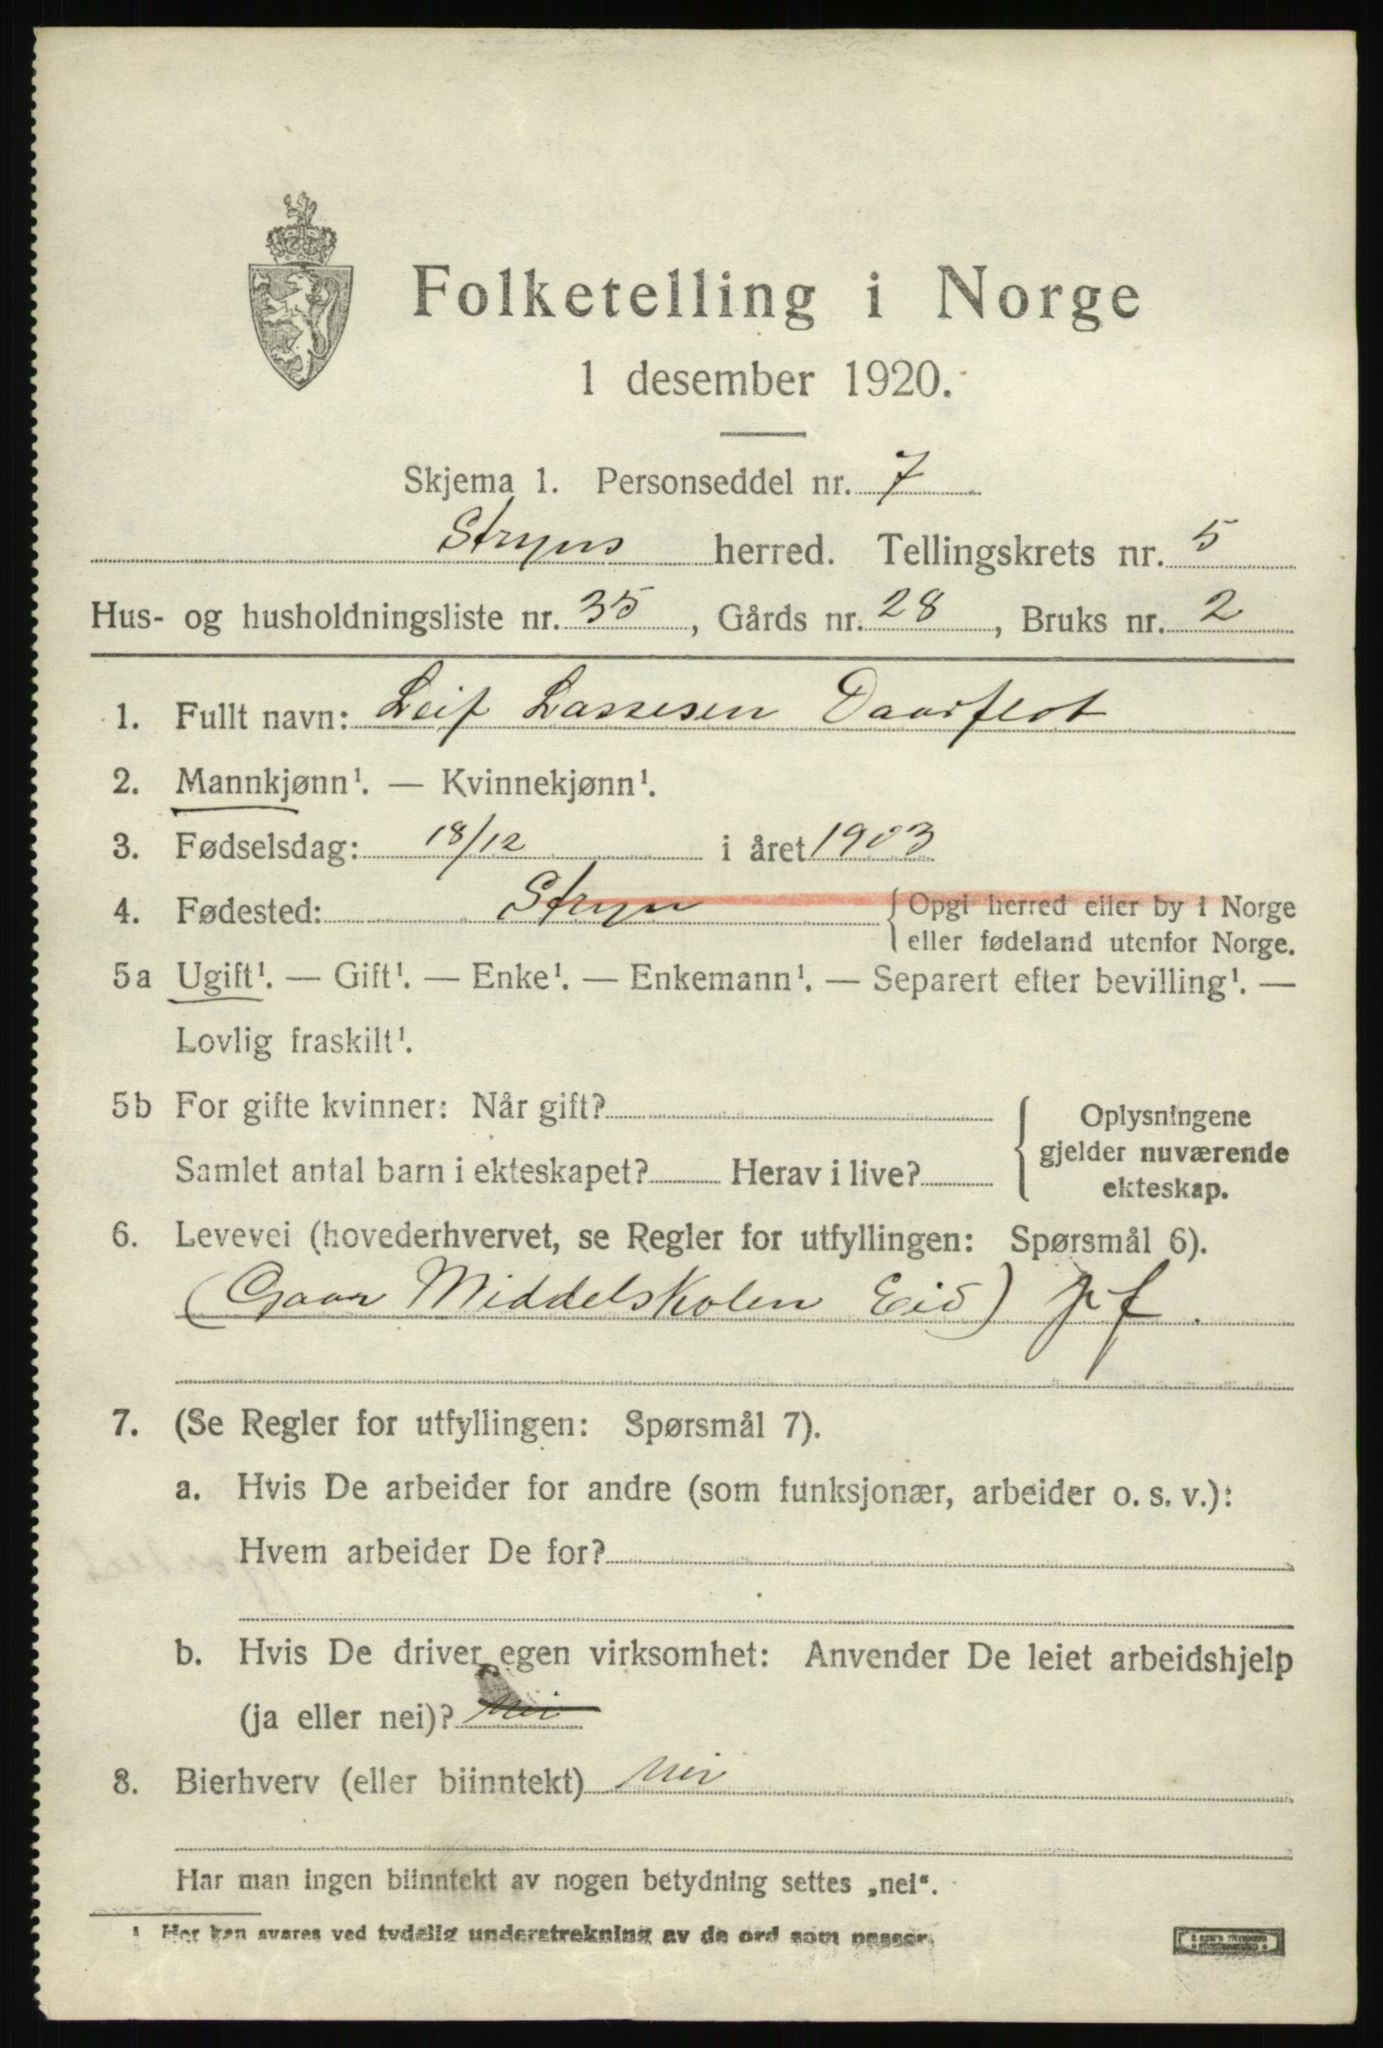 Folketelling i Norge
1 desember 1920.
Skjema 1. Personseddel nr. 7
Stryns herred. Tellingskrets nr. 5
Hus- og husholdningsliste nr. 35, Gårds nr. 28, Bruks nr. 2
1. Fullt navn: Leif Lassesen Daarflot
2. Mannkjønn¹. — Kvinnekjønn¹.
3. Fødselsdag: 18/12 i året 1903
4. Fødested: Stryn { Opgi herred eller by i Norge
eller fødeland utenfor Norge.
5a Ugift¹. — Gift¹. — Enke¹. — Enkemann¹. — Separert efter bevilling¹. —
Lovlig fraskilt¹.
5b For gifte kvinner: Når gift?
Samlet antal barn i ekteskapet? Herav i live?
{ Oplysningene
gjelder nuværende
ekteskap.
6. Levevei (hovederhvervet, se Regler for utfyllingen: Spørsmål 6).
(Gaar Middelskolen Eid)
7. (Se Regler for utfyllingen: Spørsmål 7).
a. Hvis De arbeider for andre (som funksjonær, arbeider o. s. v.):
Hvem arbeider De for?
b. Hvis De driver egen virksomhet: Anvender De leiet arbeidshjelp
(ja eller nei)? nei
8. Bierhverv (eller biinntekt) nei
Har man ingen biinntekt av nogen betydning settes „nei“.
¹ Her kan svares ved tydelig understrekning av de ord som passer.